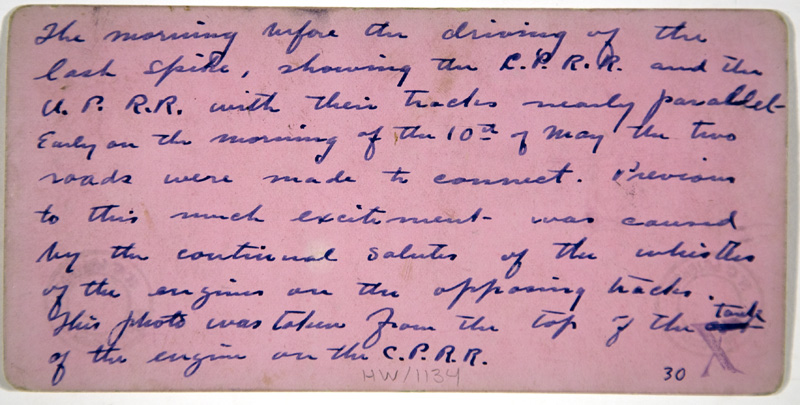 The morning before the driving of the
last spike, showing the C.P.R.R. and the
U.P. R.R. with their tracks nearly parallel-
Early on the morning of the 10th of May the two
roads were made to connect. Previous
to this much excitement was caused
by the continual salutes of the whistles
of the engines on the opposing tracks.
This photo was taken from the top of the tank
of the engine on the C.P.R.R.
HW/1134
30
X